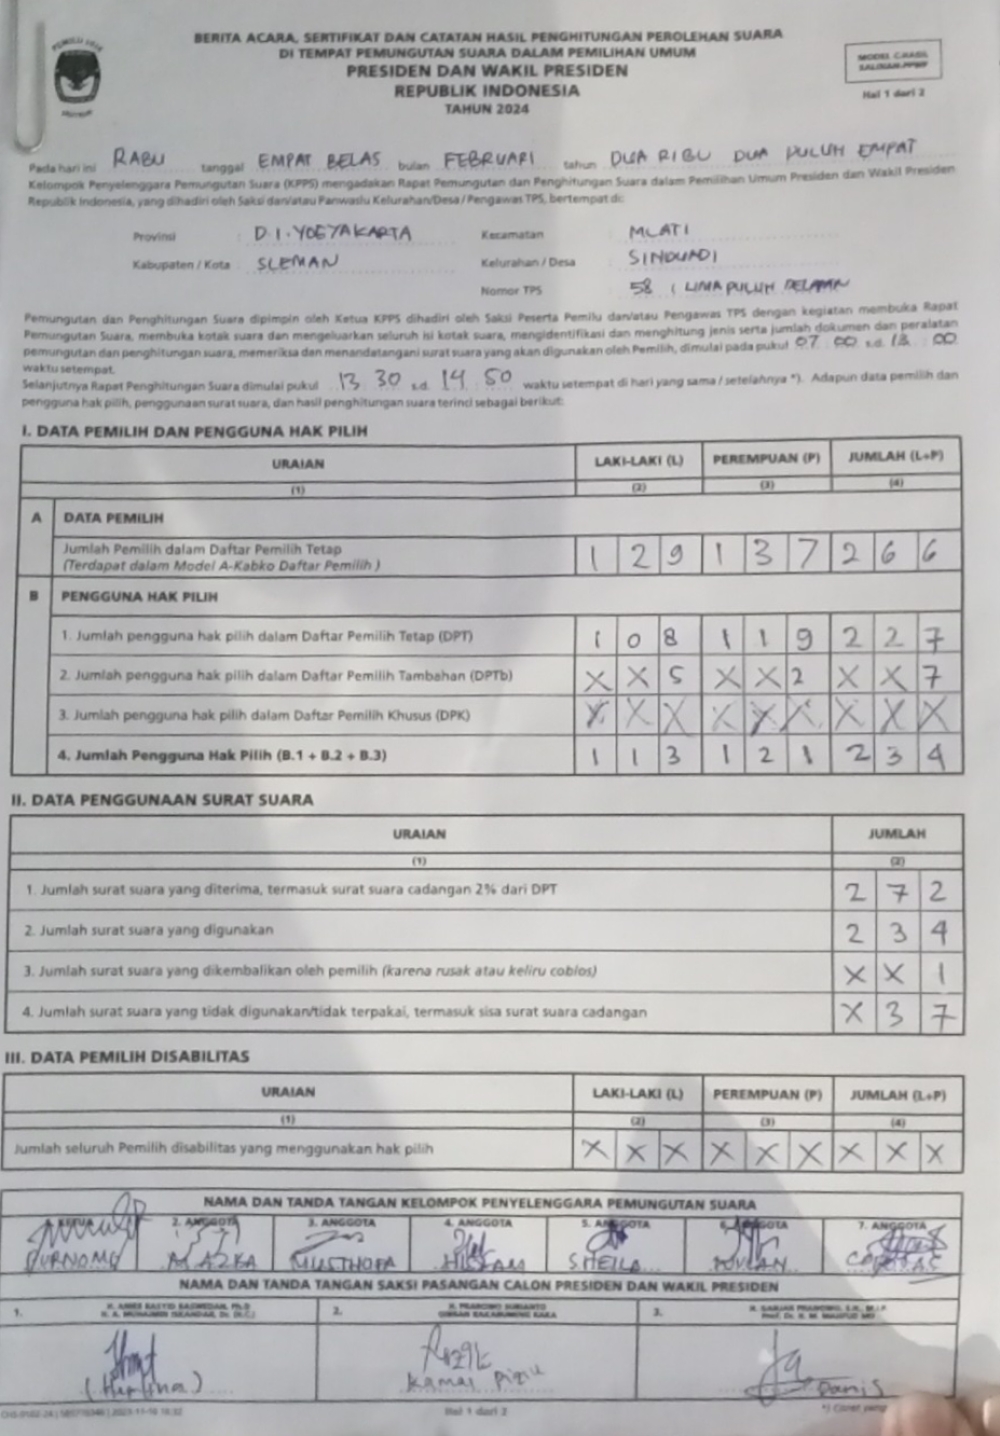 BERITA ACARA, SERTIFIKAT DAN CATATAN HASIL PENGHITUNGAN PEROLEHAN SUARA
DI TEMPAT PEMUNGUTAN SUARA DALAM PEMILIHAN UMUM
PRESIDEN DAN WAKIL PRESIDEN
REPUBLIK INDONESIA
TAHUN 2024
MODEL C.HASIL
SALINAN-PPWP
Hal 1 dari 2
Pada hari ini RABU tanggal EMPAT BELAS bulan FEBRUARI tahun DUA RIBU DUA PULUH EMPAT
Kelompok Penyelenggara Pemungutan Suara (KPPS) mengadakan Rapat Pemungutan dan Penghitungan Suara dalam Pemilihan Umum Presiden dan Wakil Presiden
Republik Indonesia, yang dihadiri oleh Saksi dan/atau Panwaslu Kelurahan/Desa / Pengawas TPS, bertempat di:
Provinsi : D.I. YOGYAKARTA Kecamatan : MLATI
Kabupaten / Kota : SLEMAN Kelurahan / Desa : SINDUADI
Nomor TPS : 58 ( LIMA PULUH DELAPAN
Pemungutan dan Penghitungan Suara dipimpin oleh Ketua KPPS dihadiri oleh Saksi Peserta Pemilu dan/atau Pengawas TPS dengan kegiatan membuka Rapat
Pemungutan Suara, membuka kotak suara dan mengeluarkan seluruh isi kotak suara, mengidentifikasi dan menghitung jenis serta jumlah dokumen dan peralatan
pemungutan dan penghitungan suara, memeriksa dan menandatangani surat suara yang akan digunakan oleh Pemilih, dimulai pada pukul 07 : 00 s.d. 13 : 00
waktu setempat.
Selanjutnya Rapat Penghitungan Suara dimulai pukul 13 : 30 s.d. 14 : 50 waktu setempat di hari yang sama / setelahnya *). Adapun data pemilih dan
pengguna hak pilih, penggunaan surat suara, dan hasil penghitungan suara terinci sebagai berikut:
I. DATA PEMILIH DAN PENGGUNA HAK PILIH
URAIAN LAKI-LAKI (L) PEREMPUAN (P) JUMLAH (L+P)
(1) (2) (3) (4)
A DATA PEMILIH
Jumlah Pemilih dalam Daftar Pemilih Tetap 1 2 9 1 3 7 2 6 6
(Terdapat dalam Model A-Kabko Daftar Pemilih )
B PENGGUNA HAK PILIH
1. Jumlah pengguna hak pilih dalam Daftar Pemilih Tetap (DPT) 1 0 8 1 1 9 2 2 7
2. Jumlah pengguna hak pilih dalam Daftar Pemilih Tambahan (DPTb) X X 5 X X 2 X X 7
3. Jumlah pengguna hak pilih dalam Daftar Pemilih Khusus (DPK) X X X X X X X X X
4. Jumlah Pengguna Hak Pilih (B.1 + B.2 + B.3) 1 1 3 1 2 1 2 3 4
II. DATA PENGGUNAAN SURAT SUARA
URAIAN JUMLAH
(1) (2)
1. Jumlah surat suara yang diterima, termasuk surat suara cadangan 2% dari DPT 2 7 2
2. Jumlah surat suara yang digunakan 2 3 4
3. Jumlah surat suara yang dikembalikan oleh pemilih (karena rusak atau keliru coblos) X X 1
4. Jumlah surat suara yang tidak digunakan/tidak terpakai, termasuk sisa surat suara cadangan X 3 7
III. DATA PEMILIH DISABILITAS
URAIAN LAKI-LAKI (L) PEREMPUAN (P) JUMLAH (L+P)
(1) (2) (3) (4)
Jumlah seluruh Pemilih disabilitas yang menggunakan hak pilih X X X X X X X X X
NAMA DAN TANDA TANGAN KELOMPOK PENYELENGGARA PEMUNGUTAN SUARA
KETUA 2. ANGGOTA 3. ANGGOTA 4. ANGGOTA 5. ANGGOTA 6. ANGGOTA 7. ANGGOTA
PURNOMO M AZKA MUSTHOFA SHEILA
NAMA DAN TANDA TANGAN SAKSI PASANGAN CALON PRESIDEN DAN WAKIL PRESIDEN
1. H. ANIES RASYID BASWEDAN, Ph.D 2. H. PRABOWO SUBIANTO 3. H. GANJAR PRANOWO, S.H., M.I.P
GIBRAN RAKABUMING RAKA
Danis
Hal 1 dari 2
*) Coret yang